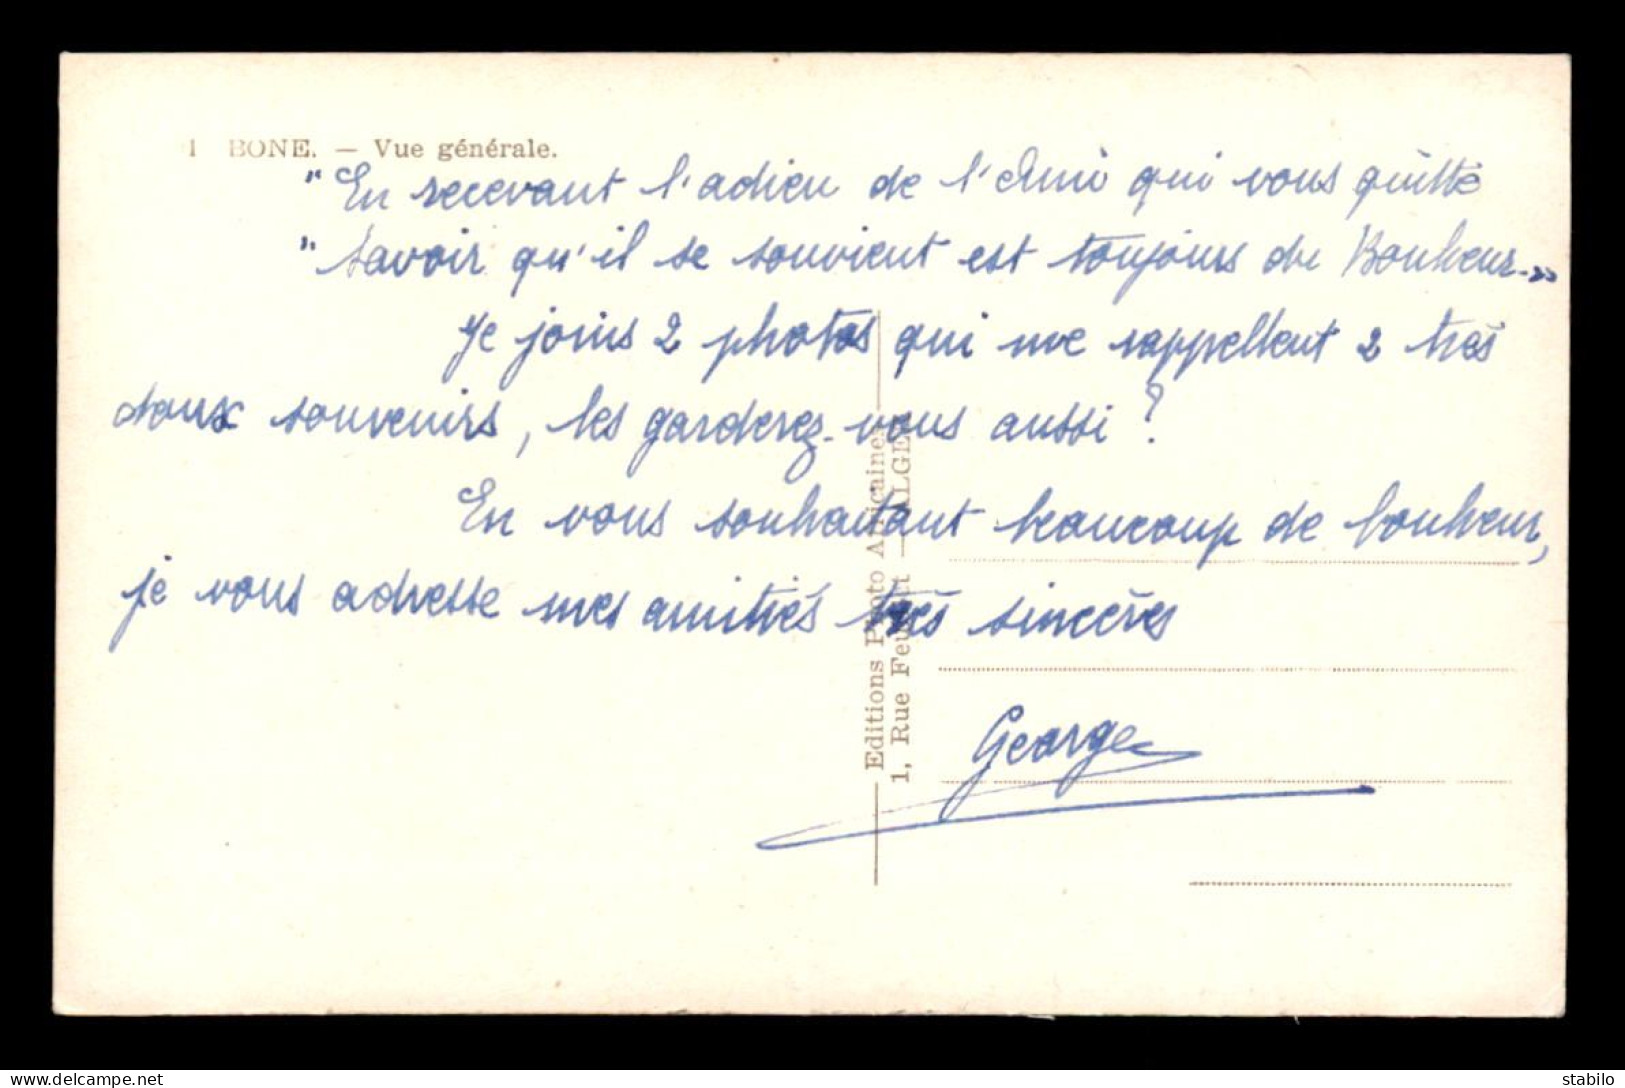 1 BONE. — Vue générale.
"En recevant l'adieu de l'Ami qui vous quitte
"Savoir qu'il se souvient est toujours du Bonheur.»
Je joins 2 photos qui me rappellent 2 très
doux souvenirs, les garderez-vous aussi ?
En vous souhaitant beaucoup de bonheur,
je vous adresse mes amitiés très sincères
George
Editions Photo Africaines
1, Rue Feuillet — ALGER
delcampe.net
stabilo